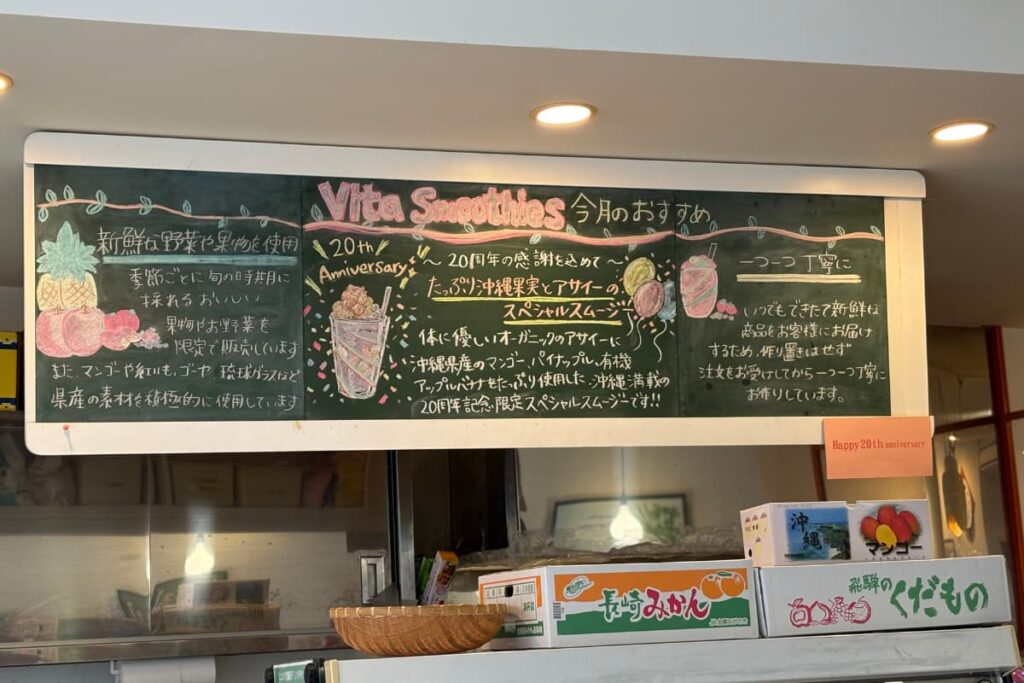 Vita Smoothies 今月のおすすめ
新鮮な野菜や果物を使用
季節ごとに旬の時期に
採れるおいしい
果物やお野菜を
限定で販売しています
また、マンゴーや紅いも、ゴーヤ、琉球グラスなど
県産の素材を積極的に使用しています
20th
Anniversary
～20周年の感謝を込めて～
たっぷり沖縄果実とアサイーの
スペシャルスムージー
体に優しいオーガニックのアサイーに
沖縄県産のマンゴー、パイナップル、有機
アップルバナナをたっぷり使用した、沖縄満載の
20周年記念、限定スペシャルスムージーです!!
一つ一つ丁寧に
いつでもできたて新鮮な
商品をお客様にお届け
するため、作り置きはせず
注文をお受けしてから一つ一つ丁寧に
お作りしています。
Happy 20th anniversary
沖縄
マンゴー
長崎みかん
飛騨のくだもの